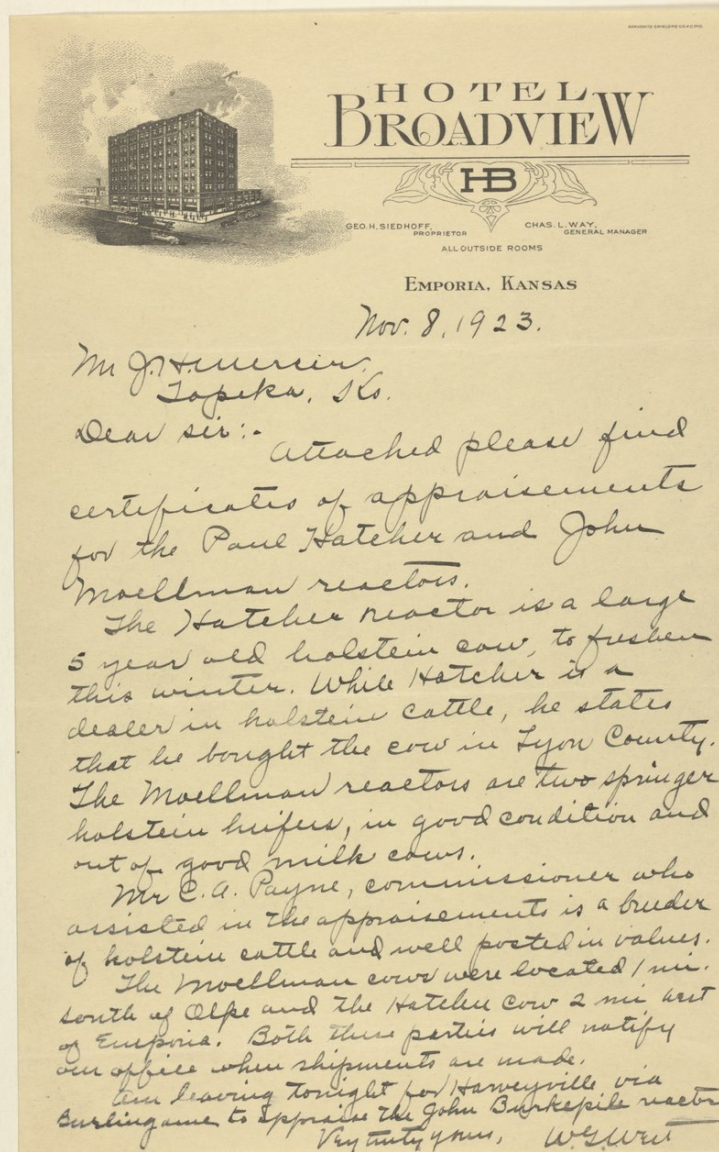 HOTEL
BROADVIEW
HB
GEO. H. SIEDHOFF,
PROPRIETOR
CHAS. L. WAY,
GENERAL MANAGER
ALL OUTSIDE ROOMS
EMPORIA, KANSAS
Nov. 8, 1923.
Mr J. H. Mercer.
Topeka, Ks.
Dear sir:-
Attached please find
certificates of appraisements
for the Paul Hatcher and John
Moellman reactors.
The Hatcher reactor is a large
5 year old holstein cow, to freshen
this winter. While Hatcher is a
dealer in holstein cattle, he states
that he bought the cow in Lyon County.
The Moellman reactors are two springer
holstein heifers, in good condition and
out of good milk cows.
Mr C. A. Payne, commissioner who
assisted in the appraisements is a breeder
of holstein cattle and well posted in values.
The Moellman cows were located 1 mi.
south of Olpe and the Hatcher cow 2 mi west
of Emporia. Both these parties will notify
our office when shipments are made.
Am leaving tonight for Harveyville via
Burlingame to appraise the John Burkepile reactor
Very truly yours,
W. G. West